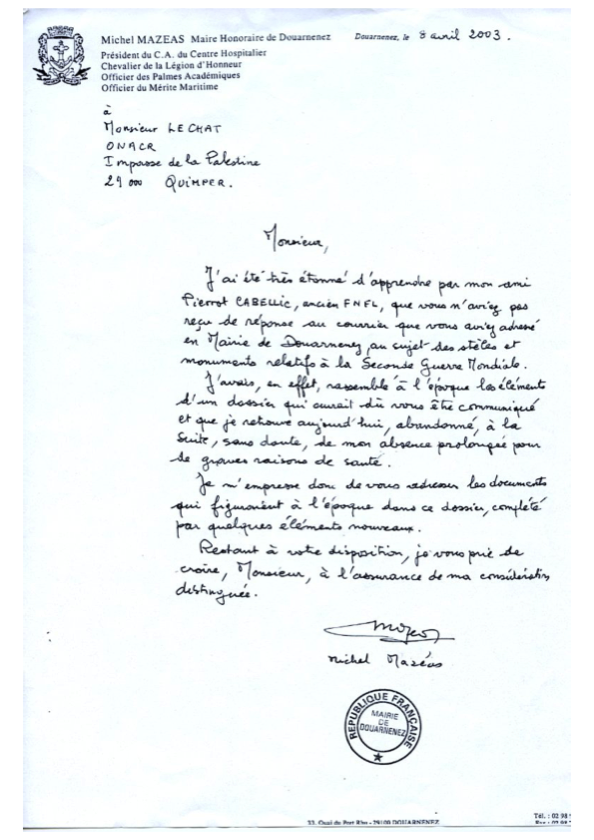 Michel MAZEAS Maire Honoraire de Douarnenez
Douarnenez, le 8 avril 2003.
Président du C.A. du Centre Hospitalier
Chevalier de la Légion d'Honneur
Officier des Palmes Académiques
Officier du Mérite Maritime
à
Monsieur LE CHAT
ONACR
Impasse de la Palestine
29000 QUIMPER.
Monsieur,
J'ai été très étonné d'apprendre par mon ami
Pierrot CABELLIC, ancien FNFL, que vous n'aviez pas
reçu de réponse au courrier que vous aviez adressé
en Mairie de Douarnenez, au sujet des stèles et
monuments relatifs à la Seconde Guerre Mondiale.
J'avais, en effet, rassemblé à l'époque les éléments
d'un dossier qui aurait dû vous être communiqué
et que je retrouve aujourd'hui, abandonné, à la
suite, sans doute, de mon absence prolongée pour
de graves raisons de santé.
Je m'empresse donc de vous adresser les documents
qui figuraient à l'époque dans ce dossier, complété
par quelques éléments nouveaux.
Restant à votre disposition, je vous prie de
croire, Monsieur, à l'assurance de ma considération
distinguée.
Michel Mazéas
REPUBLIQUE FRANÇAISE
MAIRIE
DE
DOUARNENEZ
33, Quai du Port Rhu - 29100 DOUARNENEZ
Tél. : 02 98